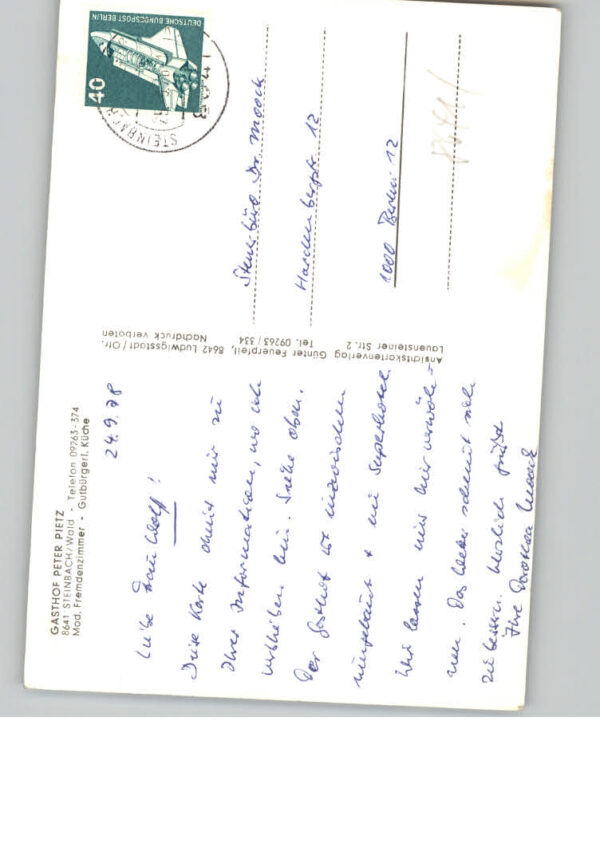 GASTHOF PETER PIETZ
8641 STEINBACH/Wald - Telefon 09263-374
Mod. Fremdenzimmer - Gutbürgerl. Küche
24.9.78
Liebe Frau Wolf!
Diese Karte dient nur zu
Ihrer Information, wo ich
verblieben bin. Siehe oben.
Der Gasthof ist inzwischen
umgebaut + ein Superhotel.
Wir lassen uns hier verwöh-
nen. Das Wetter scheint sich
zu bessern. Herzlich grüßt
Ihre Dorothea
Ansichtskartenverlag Günter Feuerpfeil, 8642 Ludwigsstadt/Ofr.
Lauensteiner Str. 2 Tel. 09263/334 Nachdruck verboten
DEUTSCHE BUNDESPOST BERLIN
40
STEINBACH
Steuerbüro Dr. Moock
Hardenbergstr. 12
1000 Berlin 12